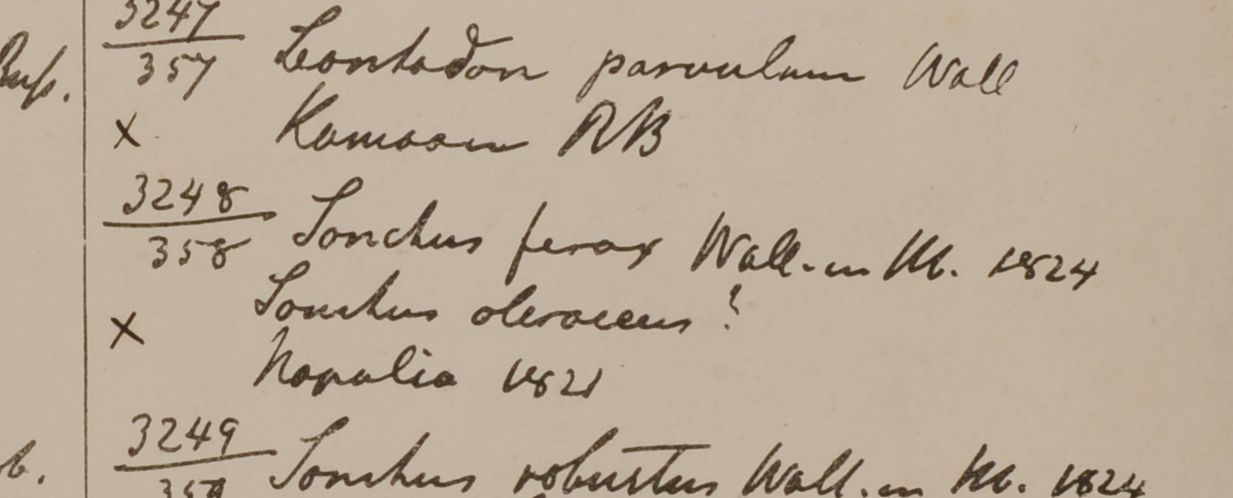 3247
357 Leontodon parvulum Wall
x Kamaon RB
3248
358 Sonchus ferox Wall. in 1824
Sonchus oleraceus?
x Napalia 1821
3249
359 Sonchus robustus Wall. in 1824